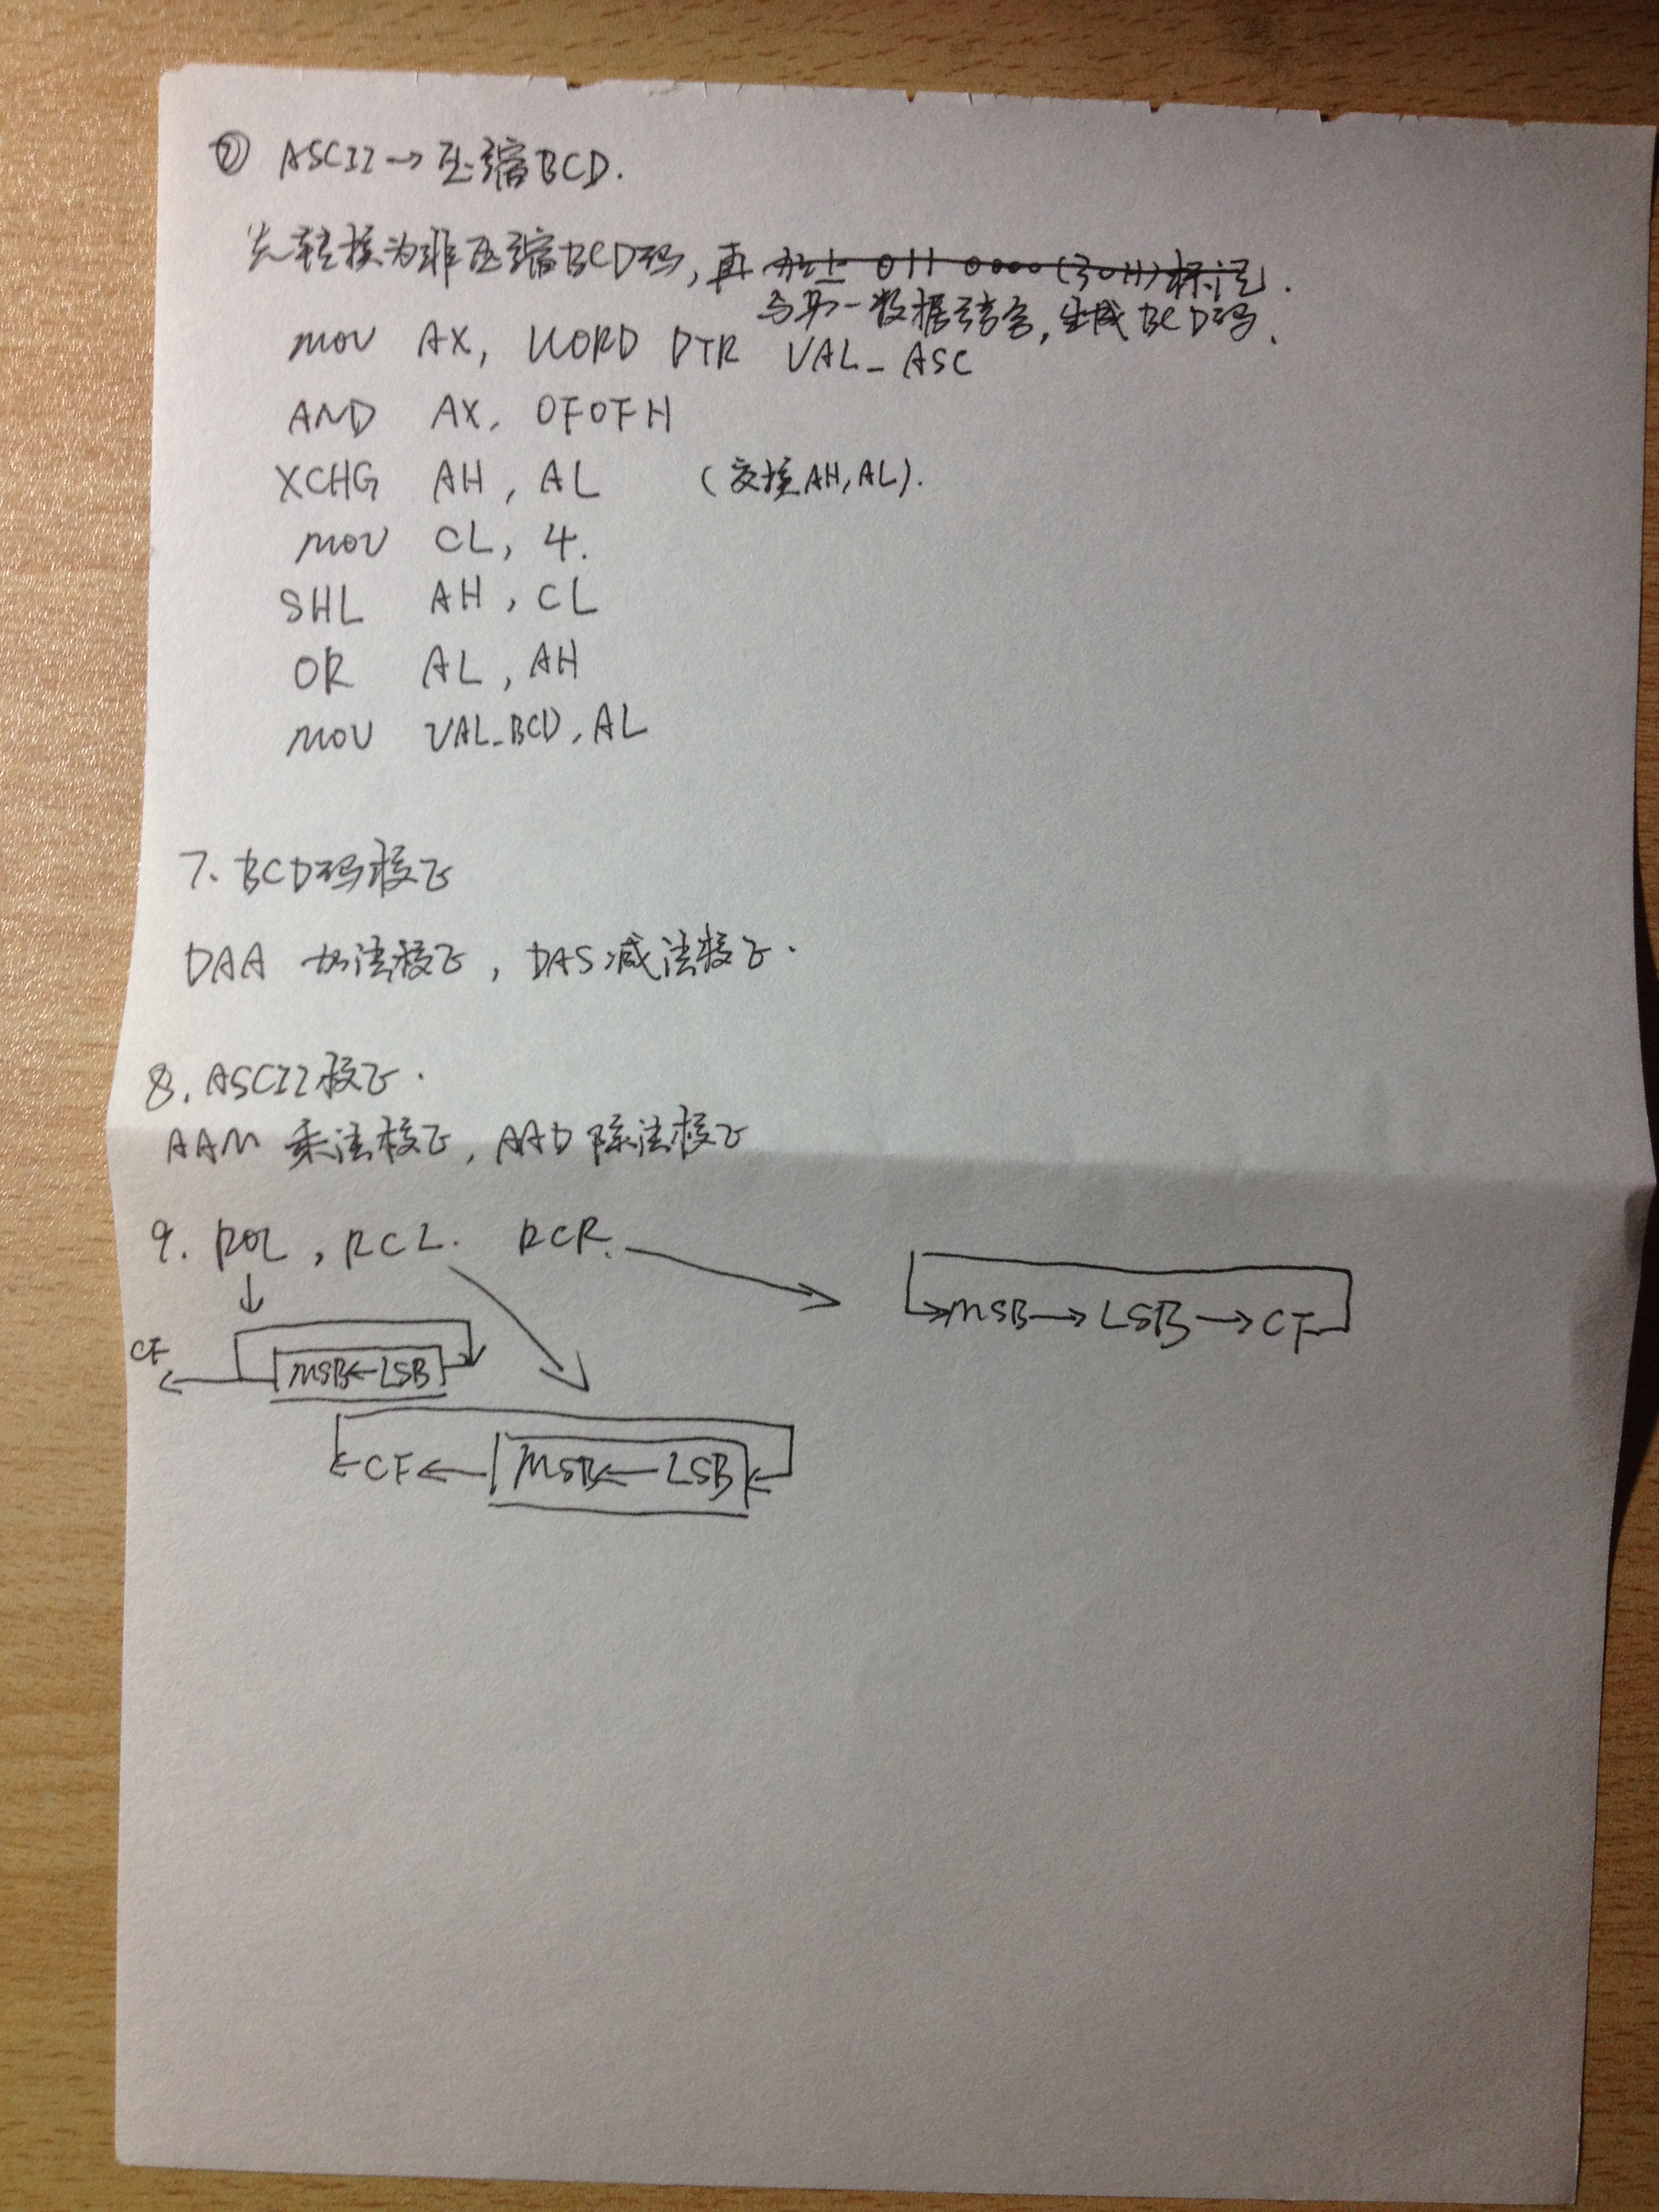 ② ASCII→压缩BCD.
先转换为非压缩BCD码,再加上 011 0000(30H)标记.
与另一数据结合,生成BCD码.
MOV AX, WORD PTR VAL_ASC
AND AX, 0F0FH
XCHG AH, AL (交换AH,AL).
MOV CL, 4.
SHL AH, CL
OR AL, AH
MOV VAL_BCD, AL
7. BCD码校正
DAA 加法校正, DAS减法校正.
8. ASCII校正.
AAM 乘法校正, AAD 除法校正
9. ROL, RCL. RCR.
→MSB→LSB→CF
CF
← MSB←LSB
←CF← MSB←LSB ←